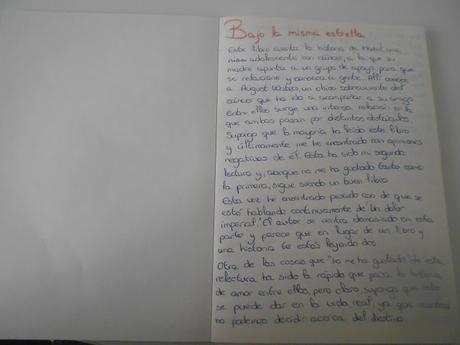 Bajo la misma estrella
Este libro cuenta la historia de Hazel, una
adolescente con cáncer, a la que su
madre apunta a un grupo de apoyo para que
se relacione y conozca a gente. Allí conoce
a August Waters, un chico sobreviviente del
cáncer que ha ido a acompañar a su amigo
entre ellos surge una intensa relación en la
que ambos pasan por distintos obstáculos
Supongo que la mayoría ha leído este libro
y últimamente me he encontrado con opiniones
negativas de él. Esta ha sido mi segunda
lectura y, aunque no me ha gustado tanto como
la primera, sigue siendo un buen libro.
Esta vez he encontrado pesado con de que se
está hablando continuamente de "Un dolor
imperial". El autor se centra demasiado en esta
parte y parece que en lugar de un libro y
una historia te estás leyendo dos
Otra de las cosas que "no me ha gustado" de esta
relectura ha sido la rápida que pasa la historia
de amor entre ellos, pero claro, supongo que esto
se puede dar en la vida real, ya que nosotros
no podemos decidir acerca del destino